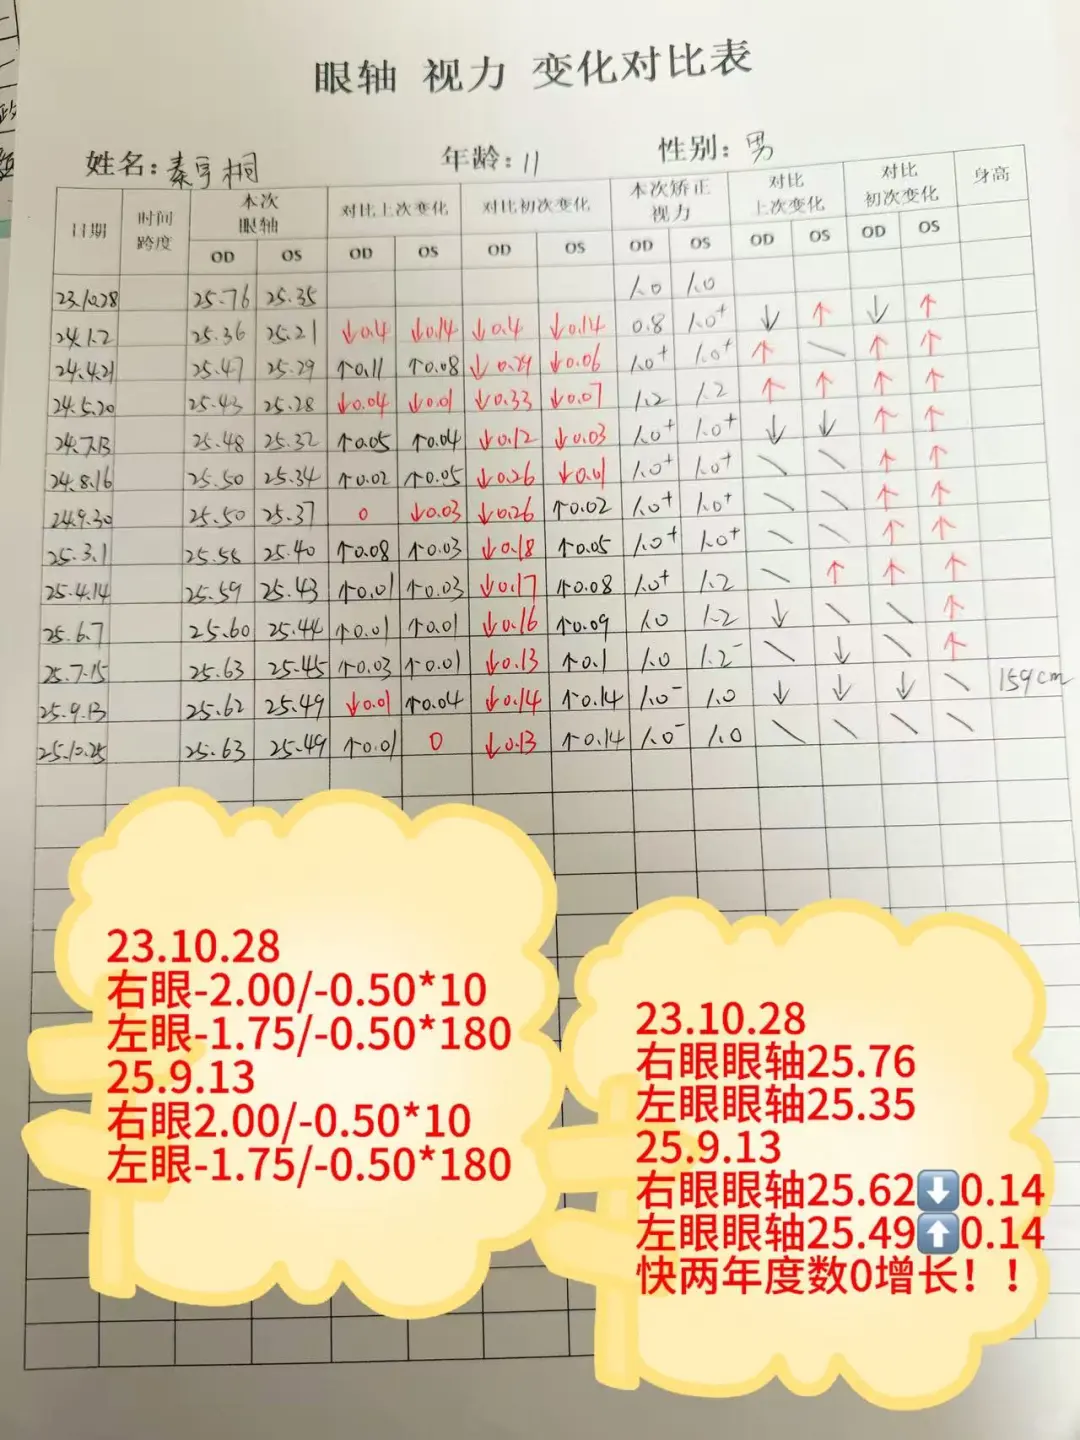 眼轴 视力 变化对比表
姓名: 秦宇桐 年龄: 11 性别: 男
日期 时间跨度 本次眼轴 对比上次变化 对比初次变化 本次矫正视力 对比上次变化 对比初次变化 身高
OD OS OD OS OD OS OD OS OD OS OD OS
23.10.28 25.76 25.35 1.0 1.0
24.1.2 25.36 25.21 ↓0.4 ↓0.14 ↓0.4 ↓0.14 0.8 1.0⁺ ↓ ↑ ↓ ↑
24.4.21 25.47 25.29 ↑0.11 ↑0.08 ↓0.29 ↓0.06 1.0⁺ 1.0⁺ ↑ \ ↑ ↑
24.5.20 25.43 25.28 ↓0.04 ↓0.01 ↓0.33 ↓0.07 1.2 1.2 ↑ ↑ ↑ ↑
24.7.13 25.48 25.32 ↑0.05 ↑0.04 ↓0.12 ↓0.03 1.0⁺ 1.0⁺ ↓ ↓ ↑ ↑
24.8.16 25.50 25.34 ↑0.02 ↑0.05 ↓0.26 ↓0.01 1.0⁺ 1.0⁺ \ \ ↑ ↑
24.9.30 25.50 25.37 0 ↓0.03 ↓0.26 ↑0.02 1.0⁺ 1.0⁺ \ \ ↑ ↑
25.3.1 25.58 25.40 ↑0.08 ↑0.03 ↓0.18 ↑0.05 1.0⁺ 1.0⁺ \ \ ↑ ↑
25.4.14 25.59 25.43 ↑0.01 ↑0.03 ↓0.17 ↑0.08 1.0⁺ 1.2 \ ↑ ↑ ↑
25.6.7 25.60 25.44 ↑0.01 ↑0.01 ↓0.16 ↑0.09 1.0 1.2 ↓ \ \ ↑
25.7.15 25.63 25.45 ↑0.03 ↑0.01 ↓0.13 ↑0.1 1.0 1.2⁻ \ ↓ \ ↑
25.9.13 25.62 25.49 ↓0.01 ↑0.04 ↓0.14 ↑0.14 1.0⁻ 1.0 ↓ ↓ ↓ \ 159cm
25.10.25 25.63 25.49 ↑0.01 0 ↓0.13 ↑0.14 1.0⁻ 1.0 \ \ \ \
23.10.28
右眼-2.00/-0.50*10
左眼-1.75/-0.50*180
25.9.13
右眼2.00/-0.50*10
左眼-1.75/-0.50*180
23.10.28
右眼眼轴25.76
左眼眼轴25.35
25.9.13
右眼眼轴25.62⬇️0.14
左眼眼轴25.49⬆️0.14
快两年度数0增长！！